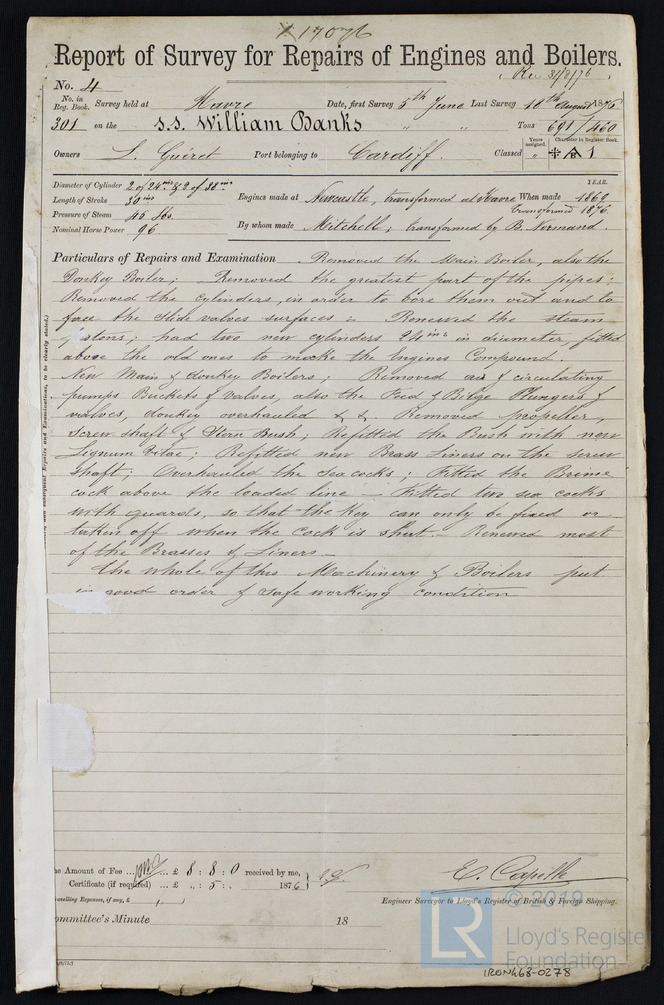 Report of Survey for Repairs of Engines and Boilers.
Rec 31/8/76
No. 4
No. in Reg. Book. Survey held at Havre Date, first Survey 5th June Last Survey 18th August 1876
301 on the S.S. William Banks " " Tons 691/460
Owners L. Guéret Port belonging to Cardiff. Classed Years assigned. " Character in Register Book. A 1
Diameter of Cylinder 2 of 24ins & 2 of 38ins
Length of Stroke 30 ins
Pressure of Steam 45 lbs.
Nominal Horse Power 96
YEAR.
Engines made at Newcastle, transformed at Havre When made 1869
transformed 1876.
By whom made Mitchell; transformed by B. Normand.
Particulars of Repairs and Examination Removed the Main Boiler, also the
Donkey Boiler; Removed the greatest part of the pipes;
Removed the Cylinders, in order to bore them out and to
face the slide valves surfaces; Renewed the steam
pistons; had two new cylinders 24ins in diameter, fitted
above the old ones to make the Engines Compound.
New Main & donkey Boilers; Removed air & circulating
pumps Buckets & valves, also the Feed & Bilge Plungers &
valves, donkey overhauled & & Removed propeller,
Screw shaft & Stern Bush; Refitted the Bush with new
Lignum Vitae; Refitted new Brass Liners on the screw
shaft; Overhauled the Sea cocks; Fitted the Brine
cock above the loaded line – Fitted two sea cocks
with guards, so that the key can only be fixed or
taken off when the Cock is shut – Renewed most
of the Brasses & Liners –
The whole of this Machinery & Boilers put
in good order & safe working condition
and subsequent Repairs and Examinations, to be clearly stated.)
he Amount of Fee ... £ 8 : 8 : 0 received by me,
Certificate (if required) ... £ " : 5 : " 1876
ravelling Expenses, if any, £
E. Capelle
Engineer Surveyor to Lloyd's Register of British & Foreign Shipping.
ommittee's Minute 18
LR
© 2019
Lloyd's Register
Foundation
IRON468-0278